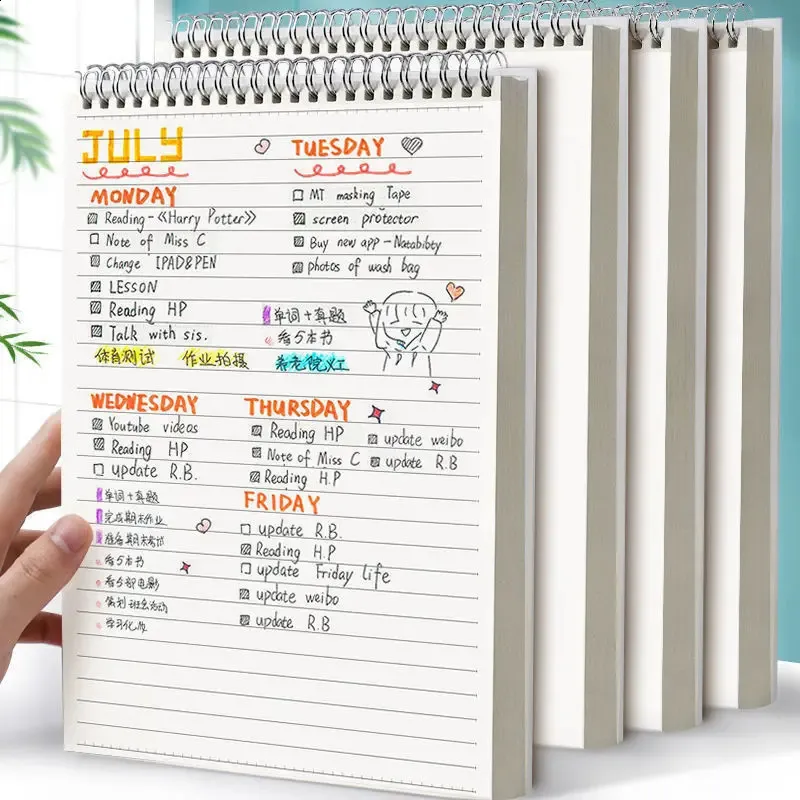 JULY
MONDAY
Reading-《Harry Potter》
Note of Miss C
Change IPAD&PEN
LESSON
Reading HP
Talk with sis.
TUESDAY
MT masking Tape
screen protector
Buy new app-Natabibty
photos of wash bag
单词+真题
看5本书
体育测试 作业拍摄 养老院义工
WEDNESDAY
Youtube videos
Reading HP
update R.B.
单词+真题
完成期末作业
准备期末考试
看5本书
看5部电影
策划班会活动
学习化妆
THURSDAY
Reading HP
Note of Miss C
Reading H.P
update weibo
update R.B
FRIDAY
update R.B.
Reading H.P
update Friday life
update weibo
update R.B